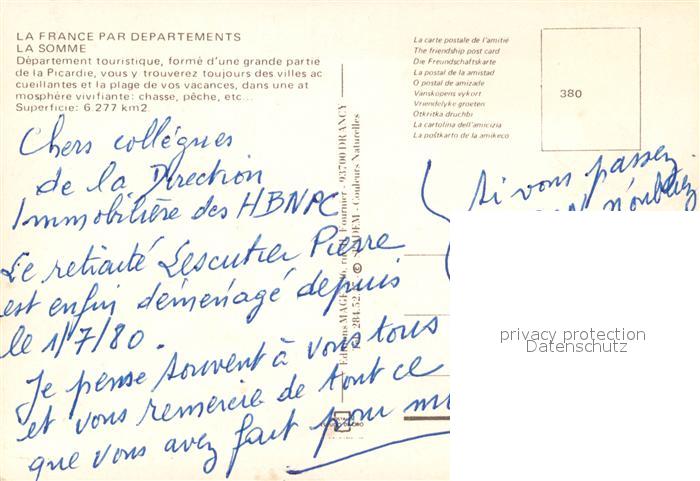 LA FRANCE PAR DEPARTEMENTS
LA SOMME
Département touristique, formé d'une grande partie
de la Picardie, vous y trouverez toujours des villes ac
cueillantes et la plage de vos vacances, dans une at
mosphère vivifiante: chasse, pêche, etc...
Superficie: 6.277 km2.
La carte postale de l'amitié
The friendship post card
Die Freundschaftskarte
La postal de la amistad
O postal de amizade
Vanskopens vykort
Vriendelyke groeten
Otkritka druchbi
La cartolina dell'amicizia
La poŝtkarto de la amikeco
380
Chers collégues
de la Direction
Immobilière des HBNPC
Le retraité Lescutier Pierre
est enfin déménagé depuis
le 1/7/80.
Je pense souvent à vous tous
et vous remercie de tout ce
que vous avez fait pour
Si vous passez
n'oubliez
Fournier - 93700 DRANCY
Couleurs Naturelles
privacy protection
Datenschutz